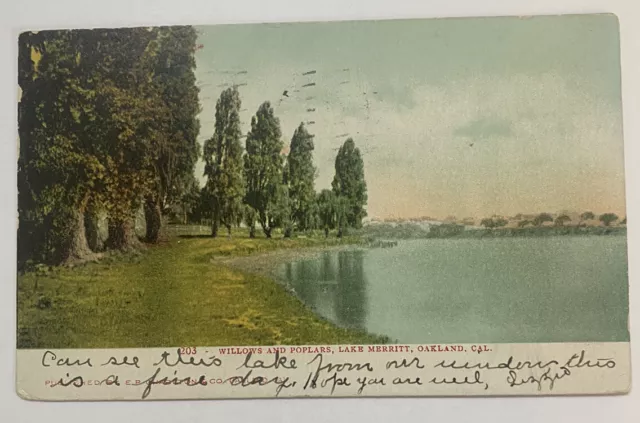 203 WILLOWS AND POPLARS, LAKE MERRITT, OAKLAND, CAL.
Can see this lake from our window this
is a fine day. Hope you are well, Lizzie